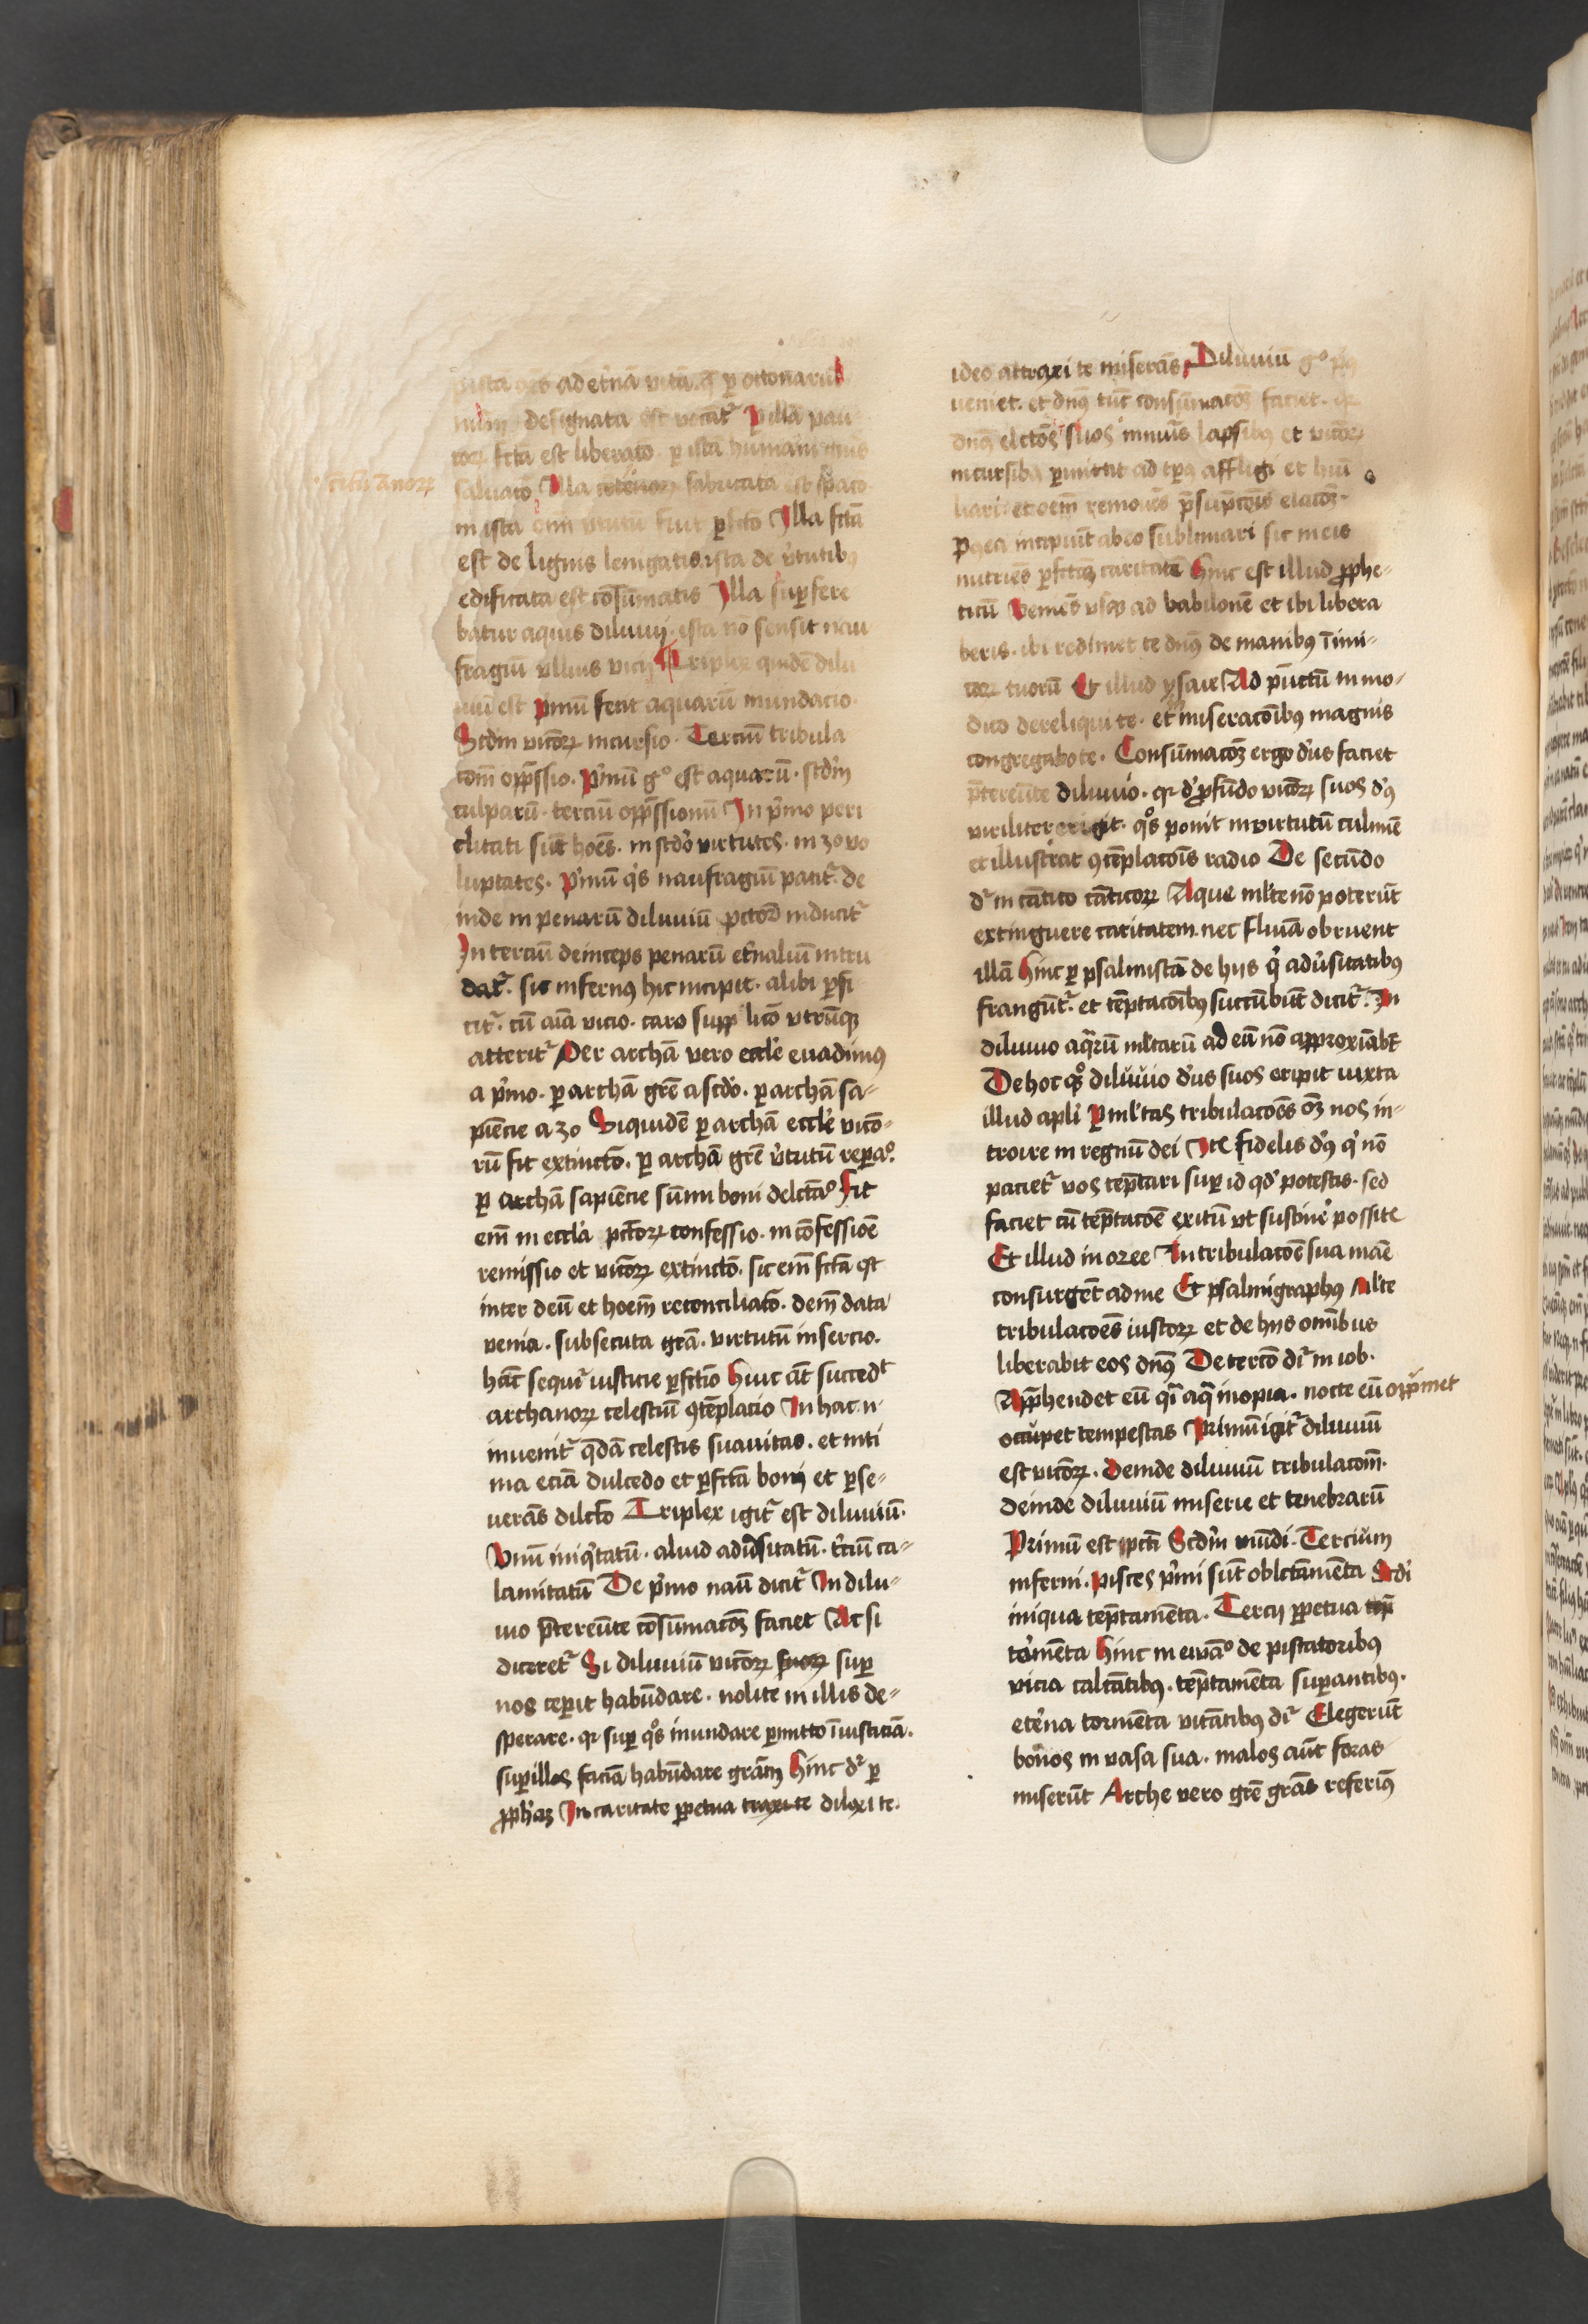 ad et͛nā vitā. q̄ ꝑ octonariū
designata est vocat͛ Ꝑ illā pau
coꝝ fctā est liberatō. ꝑ istā humani gn̄is
saluatō Illa fabricata est
in ista om̄ fuit ꝑfctō Illa fctā
est de lignis leuigatis. ista de v͛tutibꝰ
edificata est cōsūmatis Illa suꝑfere
batur aquis diluuij. ista nō sensit nau
fragiū vllius vicij Triplex quidē dilu
uiū est pͥmū ferit aquarū inundacio.
Scd̄m vicōꝝ incursio. Terciū tribula
com̄ opp̄ssio. Pͥmū gͦ est aquarū. scdm̄
culparū. terciū opp̄ssionū In pͥmo peri
clitati sūt hoēs. in scdō virtutes. in 3o vo
luptates. Pͥmū qͥs naufragiū patit͛. de
inde in penarū diluuiū pctōꝝ inducit͛
In terciū deinceps penarū et͛naliū intru
dat͛. sic infernꝰ hic incipit. alibi ꝑfi
cit͛. cū aīa vicio. caro supplicō vtrūqꝫ
atterit͛ Per archā vero eccl͛e euadimꝰ
a pͥmo. ꝑ archā grē a scdō. ꝑ archā sa-
piēcie a 3o Siquidē ꝑ archā eccl͛e vicō-
rū fit extinctō. ꝑ archā grē v͛tutū reꝑaͦ.
ꝑ archā sapiēcie sūmi boni delctāͦ Fit
em̄ in eccl͛a pctōꝝ confessio. in cōfessiōe
remissio et vicōꝝ extinctō. sic em̄ fctā est
inter deū et hoēm reconciliatō. dem̄ data
venia. subsecuta grā. virtutū insercio.
hāc sequit͛ iusticie ꝑfctīo Huic āt succedt
archanoꝝ celestiū ꝯtēplacio In hac. n.
inuenit͛ qͣdā celestis suauitas. et inti
ma eciā dulcedo et ꝑfctā boni et ꝑse-
uerās dilctō Triplex igit͛ est diluuiū.
Vnū iniqͥtatū. aliud adu͛sitatū. t͛ciū ca-
lamitatū De pͥmo naū dicit͛ In dilu-
uio p̄tereūte cōsūmacōꝫ faciet Ac si
diceret͛ Si diluuiū vicōꝝ suoꝝ suꝑ
nos ceꝑit habūdare. nolite in illis de-
sperare. qꝛ suꝑ qͦs inundare ꝑmitto īiusticiā.
suꝑ illos faciā habūdare grām Hinc d͛r ꝑ
ꝓph͛aꝫ In caritate ꝑpetua traxi te dilexi te.
sctūs anoꝝ
ideo attraxi te miserās Diluuiū gͦ
veniet. et dnꝰ tūc consūmacōꝫ faciet. qꝛ
dnꝰ elctōs suos īnnuīs lapsibꝰ et vicōꝝ
incursibꝰ ꝑmittit ad tp̄ꝰ affligi et hūi
liari. et oēm remouēs p̄sūpcōis elacōꝫ.
Postea incipiūt ab eo sublimari sic in eis
nutriēs ꝑfctāꝫ caritatē Hinc est illud ꝓphe-
ticū Venies vsqꝫ ad babilonē et ibi libera
beris. ibi redimet te dnꝰ de manibꝰ īimi-
coꝝ tuorū Et illud ysaie Ad pūctū in mo-
dico dereliqui te. et miseracōibꝰ magnis
congregabo te. Consūmacōꝫ ergo dn̄s faciet
p̄tereūte diluuio. qꝛ d͛ ꝓfūdo vicōꝝ suos dn̄s
viriliter erigit. qͦs ponit in virtutū culmē
et illustrat ꝯtēplacōis radio De secūdo
d͛r in cātico cāticoꝝ Aque ml͛te nō poterūt
extinguere caritatem. nec flumīa obruent
illā Hinc ꝑ psalmistā de hijs qͥ adu͛sitatibꝰ
frangūt͛. et tēptacōibꝰ succūbūt dicit͛. In
diluuio aqͣrū ml͛tarū ad eū nō approxīabt
De hoc qͦqꝫ diluuio dn̄s suos eripit iuxta
illud apl͛i Per ml͛tas tribulacōes oꝫ nos in-
troire in regnū dei Itē fidelis dn̄s qͥ nō
paciet͛ vos tēptari suꝑ id qd͛ potestis. sed
faciet cū tēptacōe ꝓuītū vt sustine͛ possite
Et illud in ozee In tribulacōe sua māe
consurgēt ad me Et psalmigraphꝰ Ml͛te
tribulacōes iustoꝝ et de hijs omībus
liberabit eos dnꝰ De tercō d͛r in iob.
App̄hendet eū qͣi aqͣ inopia. nocte eū opp̄met
occupet tempestas Primū igit͛ diluuiū
est vicōꝝ. deinde diluuiū tribulacom̄.
deinde diluuiū miserie et tenebrarū
Primū est pctī Scdm̄ mūdi. Tercium
inferni. pisces pͥmi sūt oblctāmēta Scdi
iniqua tēptamēta. Tercij ꝑpetua tēp
to͛mēta Hinc in ewāͦ de piscatoribꝰ
vicia calcātibꝰ. tēptamēta suꝑantibꝰ.
et͛na tormēta vitātibꝰ d͛r Elegerūt
bonos in vasa sua. malos aūt foras
miserūt Arche vero grē grās referimꝰ